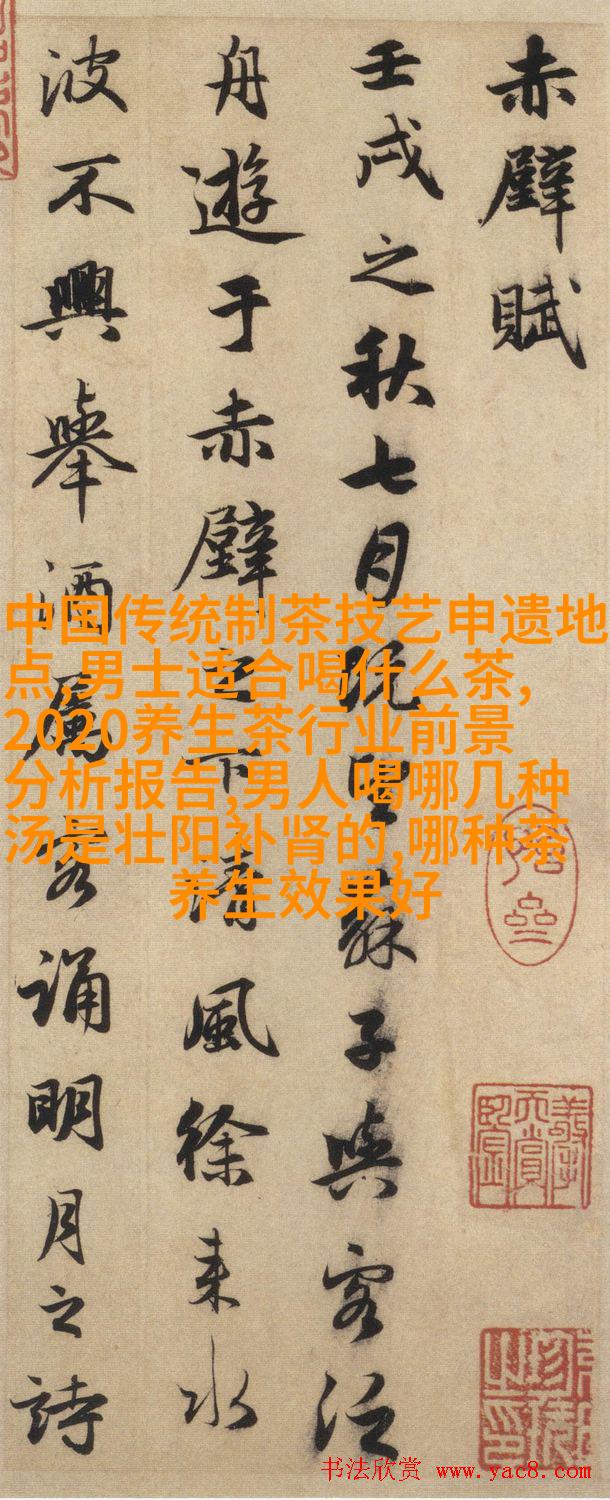 赤壁賦
壬戌之秋七月既望蘇子與客泛
舟遊于赤壁之下清風徐来水
波不興舉酒屬客誦明月之詩
中国传统制茶技艺申遗地
点,男士适合喝什么茶,
2020养生茶行业前景
分析报告,男人喝哪几种
汤是壮阳补肾的,哪种茶
养生效果好
书法欣赏 www.yac8.com